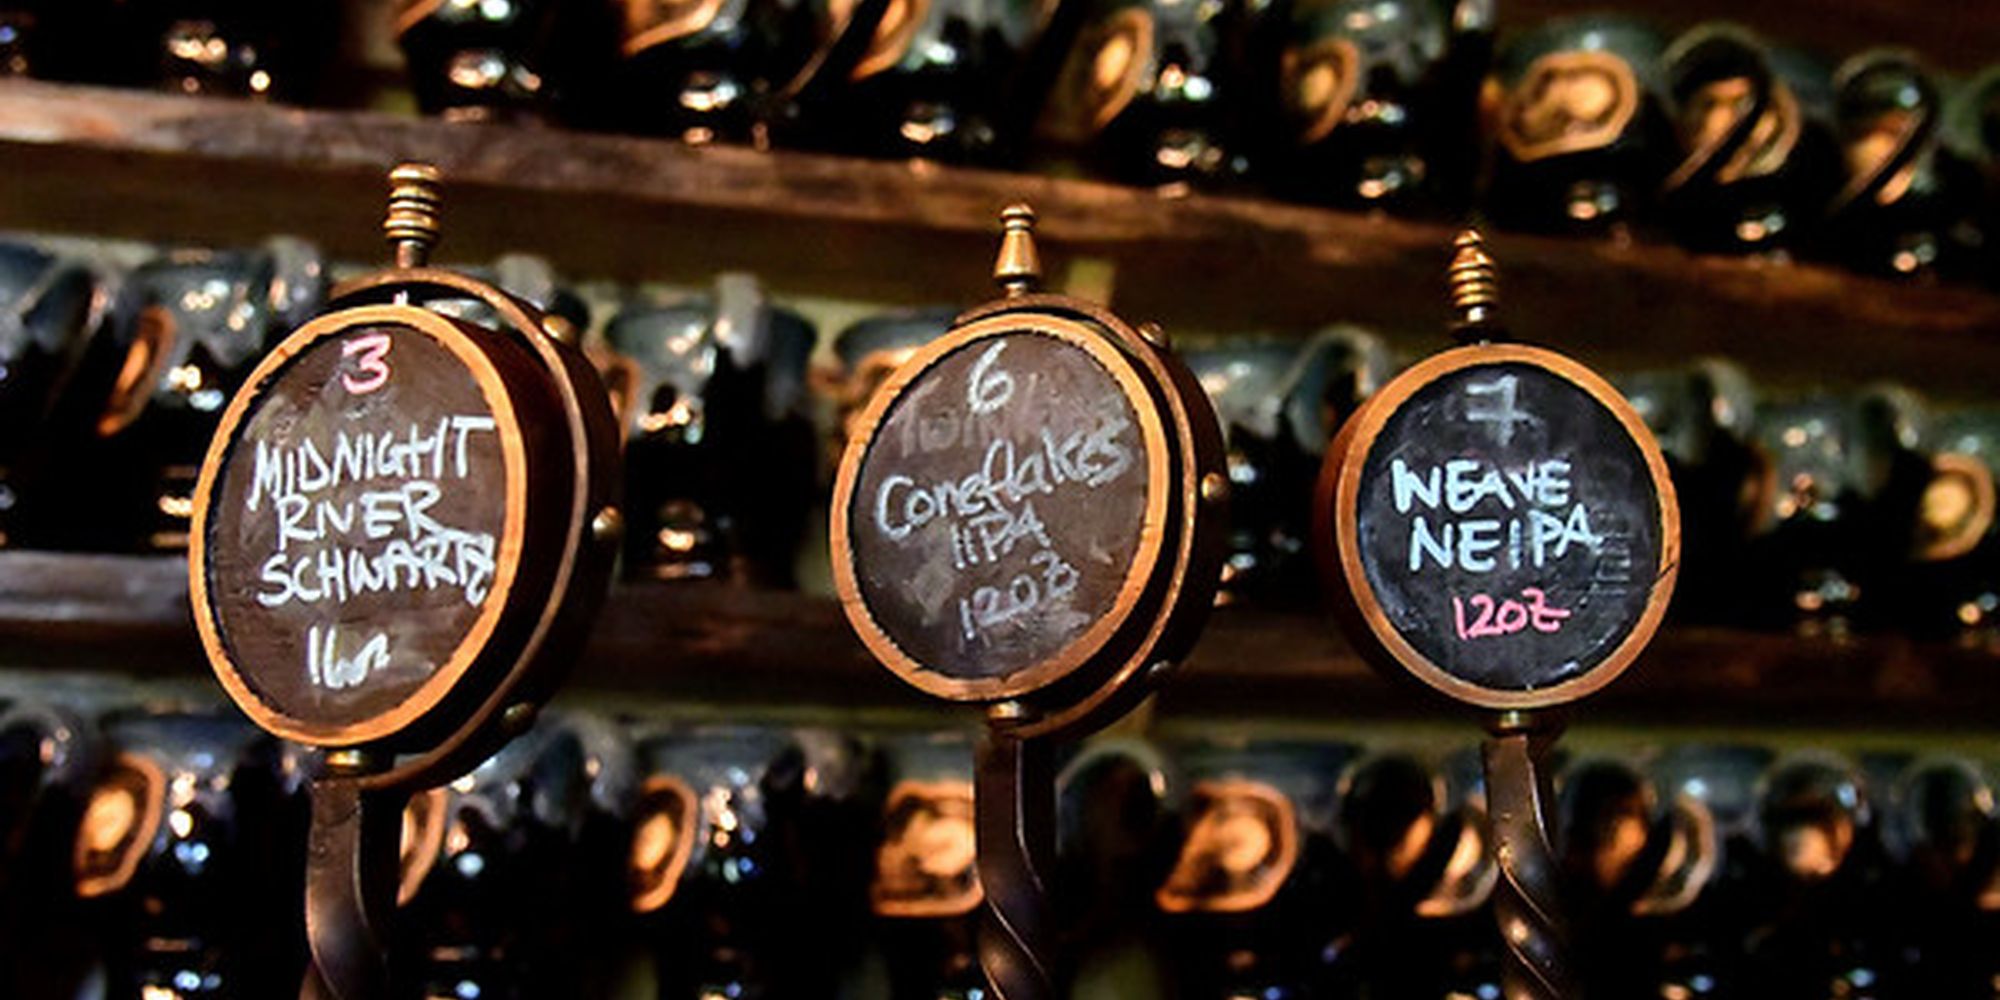 3
MIDNIGHT
RIVER
SCHWARTZ
16oz
6
Coneflakes
IIPA
12OZ
7
WEAVE
NEIPA
12OZ